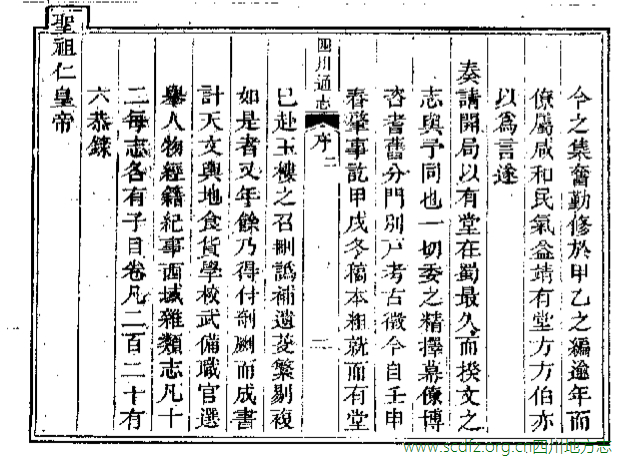 今之集奮勤修於甲乙之編逾年而
僚屬咸和民氣益靖有堂方方伯亦
以爲言遂
奏請開局以有堂在蜀最久而揆文之
志與予同也一切委之精擇幕僚博
咨耆舊分門別戸考古徵今自壬申
春肇事訖甲戌冬稿本粗就而有堂
四川通志 序 二 一
已赴玉樓之召刪譌補遺芟繁剔複
如是者又年餘乃得付剞劂而成書
計天文輿地食貨學校武備職官選
舉人物經籍紀事西域雜類志凡十
二每志各有子目卷凡二百二十有
六恭錄
聖祖仁皇帝
www.scdfz.org.cn四川地方志